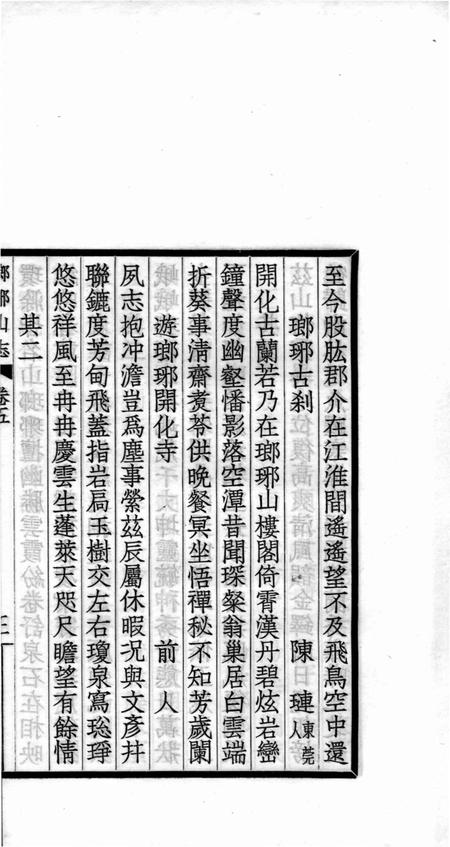 至今股肱郡介在江淮間遙遙望不及飛鳥空中還
瑯琊古刹　陳璉東莞人
開化古蘭若乃在瑯琊山樓閣倚霄漢丹碧炫岩巒
鐘聲度幽壑旛影落空潭昔聞琛粲翁巢居白雲端
折葵事清齋煑苓供晚餐冥坐悟禪秘不知芳歲闌
遊瑯琊開化寺　前人
夙志抱冲澹豈爲塵事縈茲辰屬休暇況與文彥并
聯鑣度芳甸飛蓋指岩扃玉樹交左右瓊泉寫琮琤
悠悠祥風至冉冉慶雲生蓬萊天咫尺瞻望有餘情
其二
瑯琊山志　卷五　三